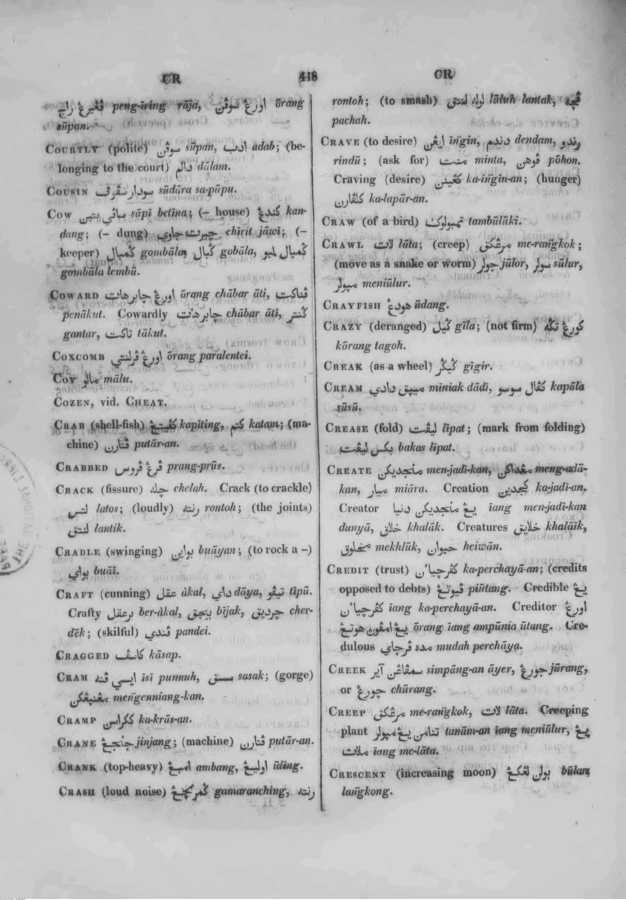 CR 418 CR
ڤڠيرڠ راج peng-iring rāja, اورڠ سوڤن ōrang
sūpan.
COURTLY (polite) سوڤن sūpan, ادب adab; (be-
longing to the court) دالم dālam.
COUSIN سودار سڤوڤو sūdāra sa-pūpu.
COW ساڤي بتين sāpi betina; (– house) كندڠ kan-
dang; (– dung) چيرت جاوي chirit jāwi; (–
keeper) گمبال gombāla, گبال gobāla, گمبال لمبو
gombāla lembū.
COWARD اورڠ چابر هاتي ōrang chābar āti, ڤناكت
penākut. Cowardly چابر هاتي chābar āti, گنتر
gantar, تاكت tākut.
COXCOMB اورڠ ڤرلنتي ōrang paralentei.
COY مالو mālu.
COZEN, vid. CHEAT.
CRAB (shell-fish) كڤيتڠ kapiting, كتم katam; (ma-
chine) ڤتارن putār-an.
CRABBED ڤرڠ ڤروس prang-prūs.
CRACK (fissure) چله chelah. Crack (to crackle)
لتس latos; (loudly) رنته rontoh; (the joints)
لنتق lantik.
CRADLE (swinging) بواين buāyan; (to rock a –)
بواي buāi.
CRAFT (cunning) عقل ākal, داي dāya, تيڤو tīpū.
Crafty برعقل ber-ākal, بيجق bījak, چرديق cher-
dēk; (skilful) ڤندي pandei.
CRAGGED كاسڤ kāsap.
CRAM ايسي ڤنه isi punnuh, سسق sasak; (gorge)
مڠنيڠكن mengenniang-kan.
CRAMP ككراسن ka-krās-an.
CRANE جنجڠ jinjang; (machine) ڤتارن putār-an.
CRANK (top-heavy) امبڠ ambang, اوليڠ ūling.
CRASH (loud noise) گمرنچڠ gamaranching, رنته
rontoh; (to smash) لوله لنتق lūluh lantak, ڤچه
pachah.
CRAVE (to desire) ايڠن ingin, دندم dendam, رندو
rindū; (ask for) منت minta, ڤوهن pōhon.
Craving (desire) كايڠينن ka-ingin-an; (hunger)
كلڤارن ka-lapār-an.
CRAW (of a bird) تمبولوك tambūlūki.
CRAWL لات lāta; (creep) مرڠكق me-rangkok;
(move as a snake or worm) جولر jūlor, سولر sūlur,
ميولر meniūlur.
CRAYFISH هودڠ ūdang.
CRAZY (deranged) گيل gīla; (not firm) كورڠ تگه
kōrang tagoh.
CREAK (as a wheel) گيگر gīgir.
CREAM مينيق دادي miniak dādi, كڤال سوسو kapāla
sūsū.
CREASE (fold) ليڤت līpat; (mark from folding)
بكس ليڤت bakas līpat.
CREATE منجديكن men-jadi-kan, مڠداكن meng-adā-
kan, ميار miāra. Creation كجدين ka-jadi-an.
Creator يڠ منجديكن دنيا iang men-jadi-kan
danyā, خلاق khalāk. Creatures خلايق khalāīk,
مخلوق mekhlūk, حيوان heiwān.
CREDIT (trust) كڤرچيان ka-perchayā-an; (credits
opposed to debts) ڤيوتڠ piūtang. Credible يڠ
كڤرچيان iang ka-perchayā-an. Creditor اورڠ
يڠ امڤون هوتڠ ōrang iang ampūnia ūtang. Cre-
dulous مده ڤرچاي mudah perchāya.
CREEK سمڤاڠن آير simpāng-an āyer, جورڠ jūrang,
or چورڠ chūrang.
CREEP مرڠكق me-rangkok, لات lāta. Creeping
plant تنامن يڠ ميولر tanām-an iang meniūlur, يڠ
ملات iang me-lāta.
CRESCENT (increasing moon) بولن لڠكڠ būlan
langkong.